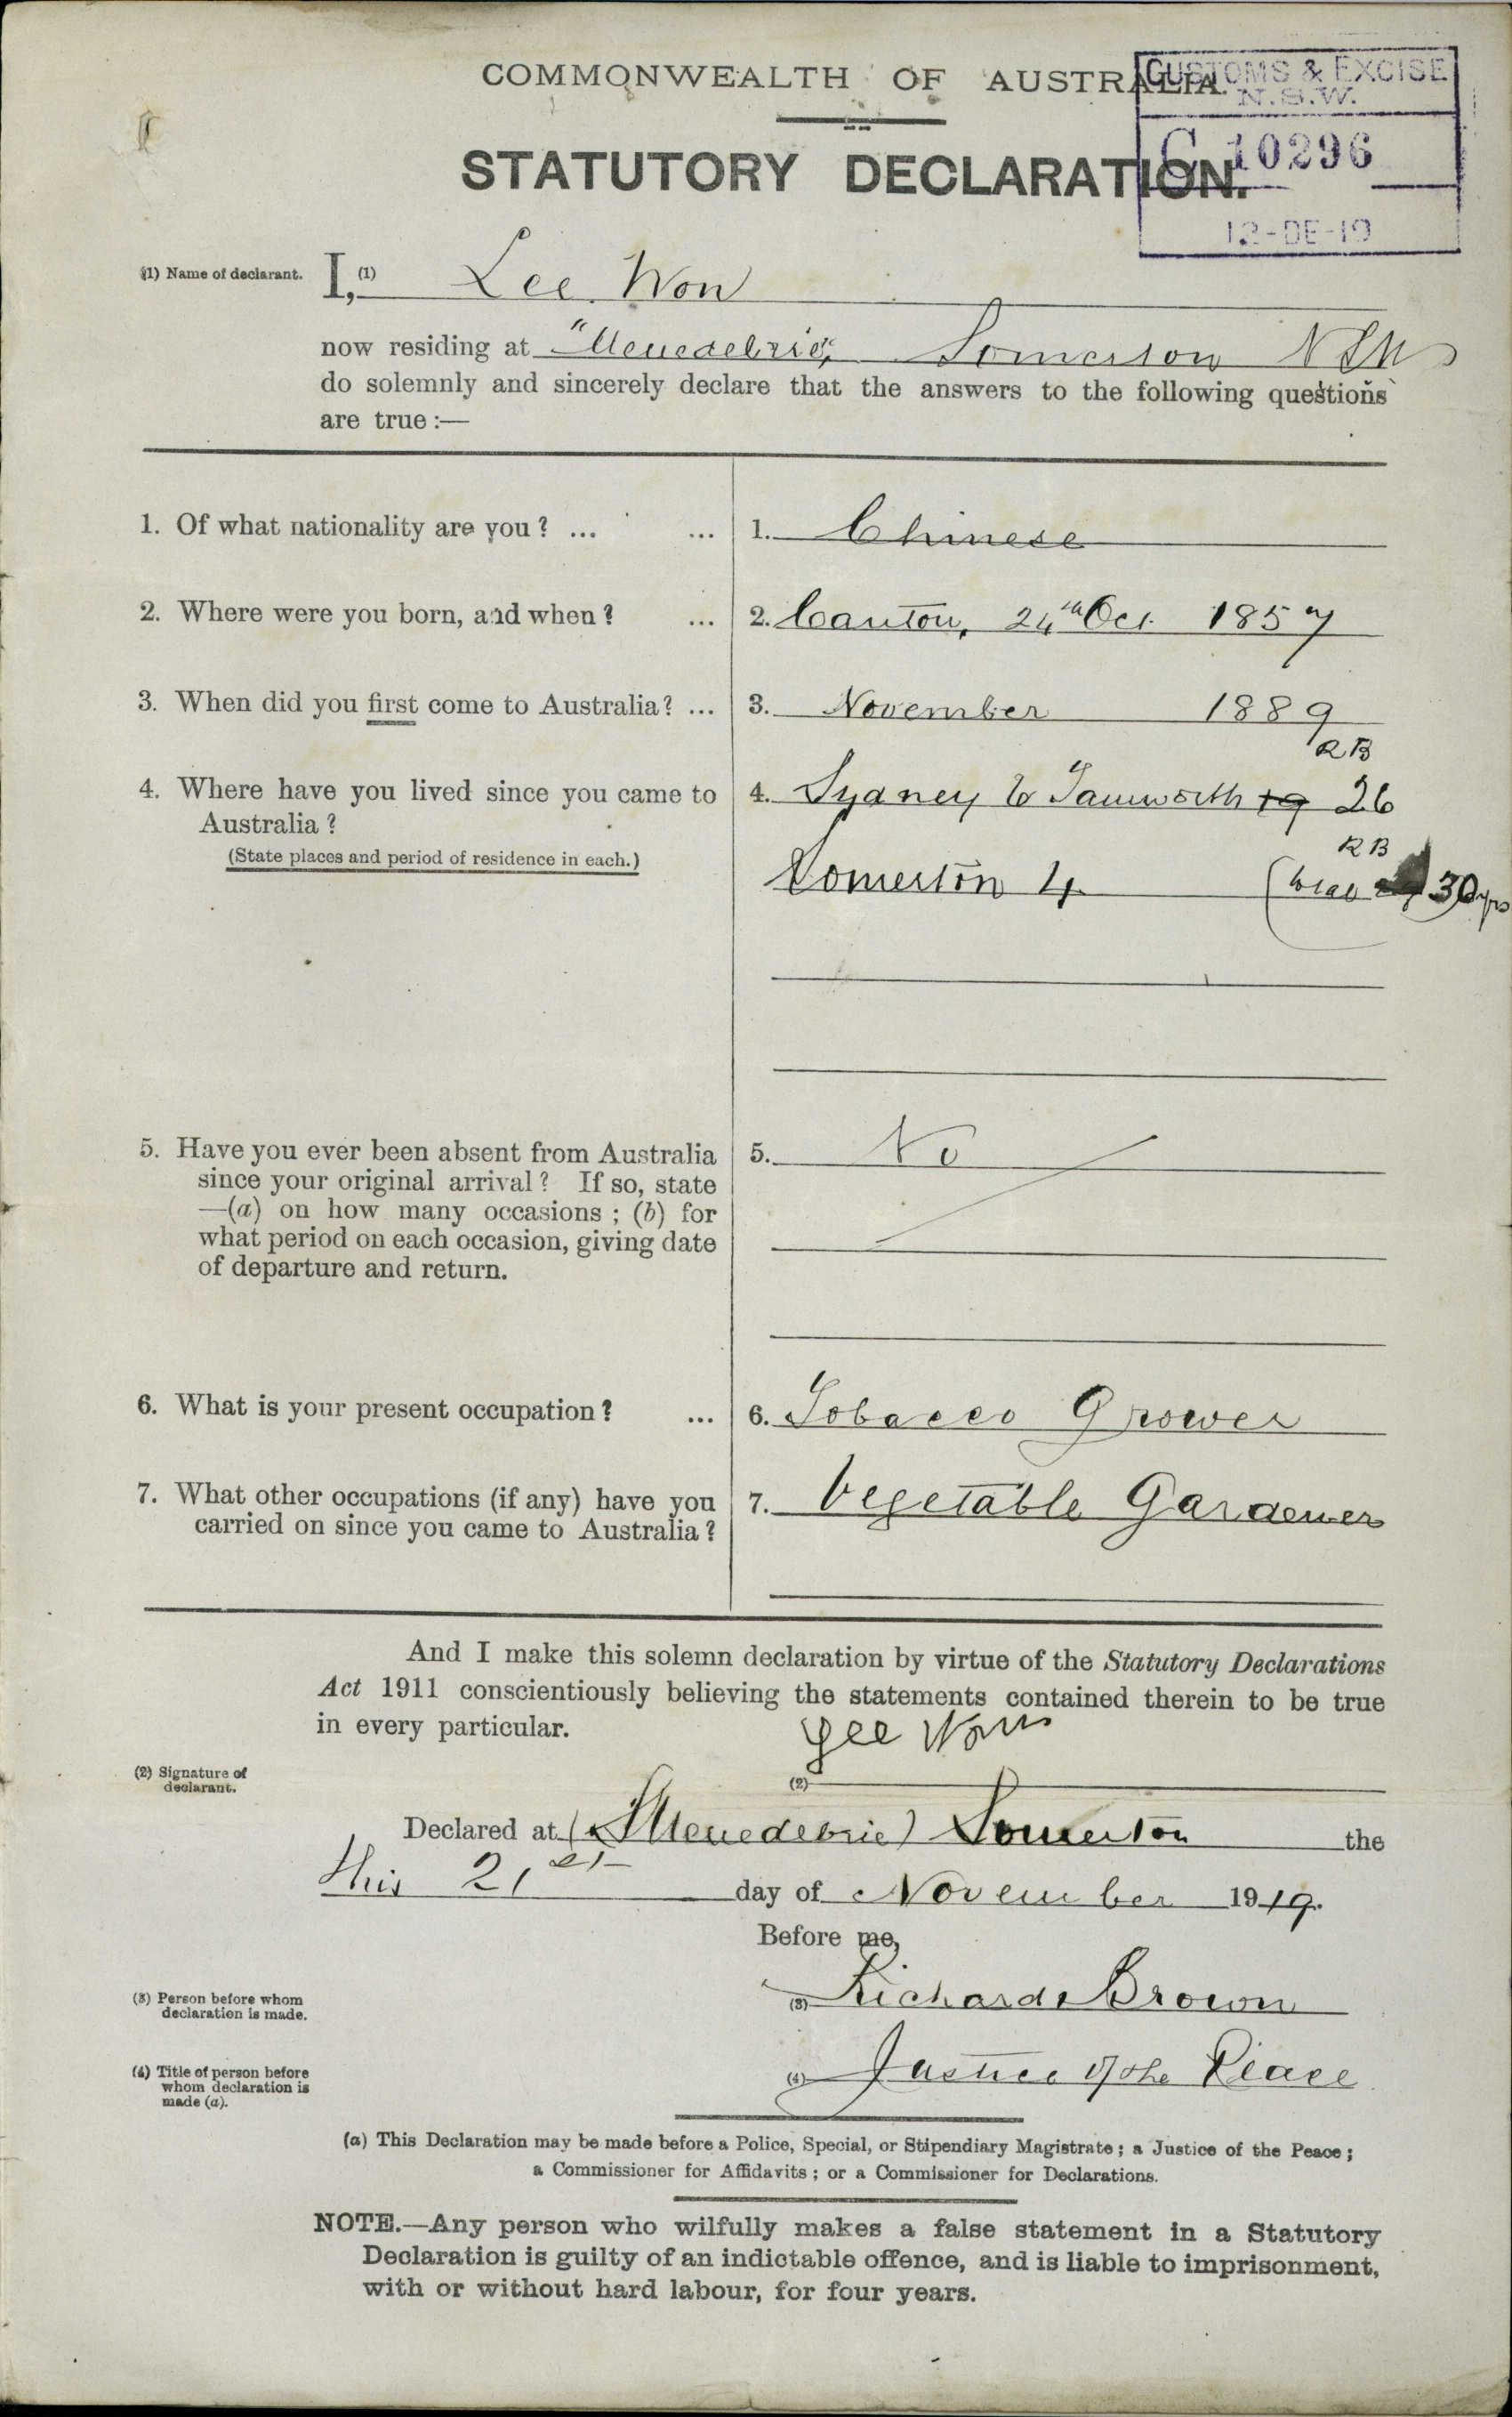 COMMONWEALTH OF AUSTRALIA.
CUSTOMS & EXCISE
N.S.W.
C 10296
12-DE-19
STATUTORY DECLARATION.
(1) Name of declarant. I,(1) Lee Won
now residing at Somerton NSW
do solemnly and sincerely declare that the answers to the following questions
are true :—
1. Of what nationality are you ? ... ... 1. Chinese
2. Where were you born, and when ? ... 2. Canton, 24th Oct 1857
3. When did you first come to Australia? ... 3. November 1889
RB
4. Where have you lived since you came to 4. Sydney to Tamworth 19 26
Australia ?
RB
(State places and period of residence in each.) Somerton 4 30 yrs
5. Have you ever been absent from Australia 5. No
since your original arrival ? If so, state
—(a) on how many occasions ; (b) for
what period on each occasion, giving date
of departure and return.
6. What is your present occupation ? ... 6. Tobacco Grower
7. What other occupations (if any) have you 7. Vegetable Gardener
carried on since you came to Australia ?
And I make this solemn declaration by virtue of the Statutory Declarations
Act 1911 conscientiously believing the statements contained therein to be true
in every particular.
Lee Won
(2) Signature of
declarant.
(2)
Declared at Somerton the
this 21st day of November 1919.
Before me,
(3) Person before whom
declaration is made.
(3) Richard Brown
(4) Title of person before
whom declaration is
made (a).
(4) Justice of the Peace
(a) This Declaration may be made before a Police, Special, or Stipendiary Magistrate ; a Justice of the Peace ;
a Commissioner for Affidavits ; or a Commissioner for Declarations.
NOTE.—Any person who wilfully makes a false statement in a Statutory
Declaration is guilty of an indictable offence, and is liable to imprisonment,
with or without hard labour, for four years.